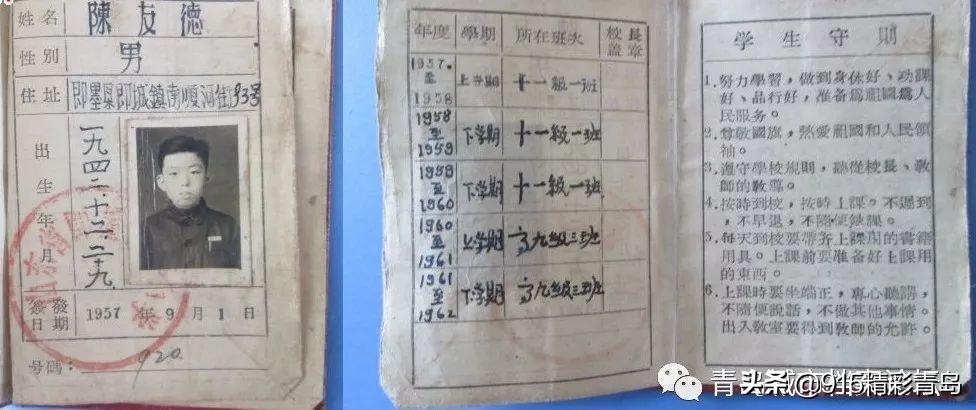 姓名 陳友德
性別 男
住址 即墨県即城鎮南順河街93号
出生年月
一九四二.十二.二十九.
簽發日期 1957年9月1日
号碼: 920
年度 學期 所在班次 校長蓋章
1957.至1958 上学期 十一級一班
1958至1959 下学期 十一級一班
1959至1960 下学期 十一級一班
1960至1961 上学期 高九級三班
1961至1962 下学期 高九级三班
學生守則
1.努力學習，做到身体好、功課
好、品行好，准备爲祖國爲人
民服务。
2.尊敬國旗，熱愛祖國和人民領
袖。
3.遵守學校規則，聽從校長、敎
師的敎導。
4.按時到校，按時上課。不遲到
，不早退，不隨便缺課。
5.每天到校要帶齐上課用的書籍
用具。上課前要准备好上課用
的東西。
6.上課時要坐端正，專心聽講，
不隨便說話，不做其他事情。
出入敎室要得到敎師的允許。
头条@915精彩青岛